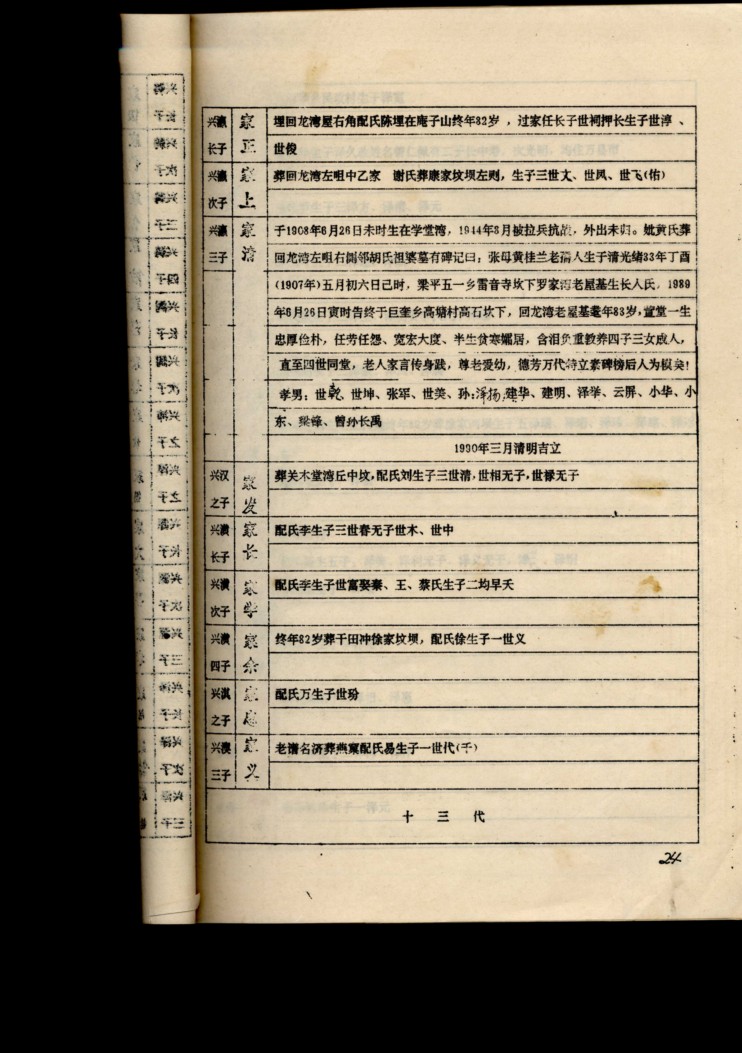 兴瀛 家 埋回龙湾屋右角配氏陈埋在庵子山终年82岁，过家任长子世祠押长生子世淳、
长子 正 世俊
兴瀛 家 葬回龙湾左咀中乙家 谢氏葬康家坟坝左则，生子三世文、世凤、世飞(佑)
次子 上
兴瀛 家 于1908年6月26日未时生在学堂湾，1944年8月被拉兵抗战，外出未归。妣黄氏葬
三子 清 回龙湾左咀右侧邻胡氏祖婆墓有碑记曰；张母黄桂兰老孺人生于清光绪33年丁酉
(1907年)五月初六日己时，梁平五一乡雷音寺坎下罗家湾老屋基生长人氏。1989
年6月26日寅时告终于巨奎乡高塘村高石坎下，回龙湾老屋基耄年83岁，置堂一生
忠厚俭朴，任劳任怨、宽宏大度、半生贫寒孀居，含泪负重教养四子三女成人，
直至四世同堂，老人家言传身践，尊老爱幼，德芳万代特立素碑榜后人为模矣!
孝男；世乾、世坤、张军、世美、孙；泽扬、建华、建明、泽举、云屏、小华、小
东、梁锋、曾孙长禹
1990年三月清明吉立
兴汉 家 葬关木堂湾丘中坟，配氏刘生子三世清，世相无子，世禄无子
之子 发
兴潢 家 配氏李生子三世春无子世木、世中
长子 长
兴潢 家 配氏李生子世富娶秦、王、蔡氏生子二均早夭
次子 学
兴潢 家 终年82岁葬干田冲徐家坟坝，配氏徐生子一世义
四子 余
兴淇 家 配氏万生子世玢
之子
兴澳 家 老谱名济葬燕窠配氏易生子一世代(千)
三子 义
十 三 代
24